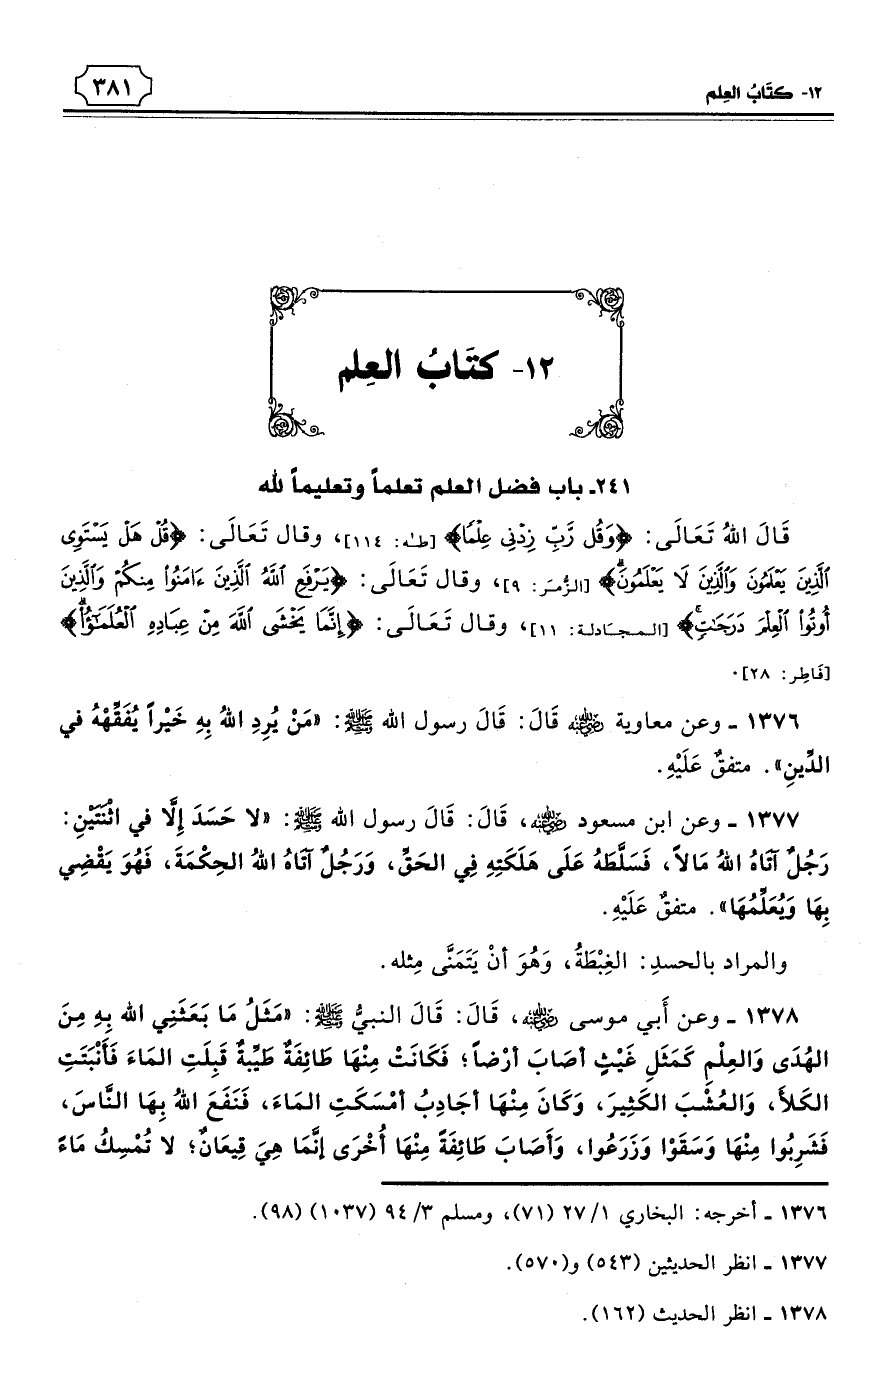 ١٢- كتَابُ العِلم
٣٨١
١٢- كتَابُ العِلم
٢٤١ـ باب فضل العلم تعلماً وتعليماً لله
قَالَ اللهُ تَعَالَى: ﴿وَقُل رَّبِّ زِدْنِى عِلْمًا﴾ [طـٰه: ١١٤]، وقال تَعَالَى: ﴿قُلْ هَلْ يَسْتَوِى
ٱلَّذِينَ يَعْلَمُونَ وَٱلَّذِينَ لَا يَعْلَمُونَۗ﴾ [الزُّمَر: ٩]، وقال تَعَالَى: ﴿يَرْفَعِ ٱللَّهُ ٱلَّذِينَ ءَامَنُوا۟ مِنكُمْ وَٱلَّذِينَ
أُوتُوا۟ ٱلْعِلْمَ دَرَجَٰتٍۚ﴾ [المجَادلة: ١١]، وقال تَعَالَى: ﴿إِنَّمَا يَخْشَى ٱللَّهَ مِنْ عِبَادِهِ ٱلْعُلَمَٰٓؤُا۟ۗ﴾
[فَاطِر: ٢٨].
١٣٧٦ ـ وعن معاوية رضي الله عنه قَالَ: قَالَ رسول الله ﷺ: «مَنْ يُرِدِ اللهُ بِهِ خَيْراً يُفَقِّهْهُ في
الدِّينِ». متفقٌ عَلَيْهِ.
١٣٧٧ ـ وعن ابن مسعود رضي الله عنه، قَالَ: قَالَ رسول الله ﷺ: «لا حَسَدَ إِلَّا في اثْنَتَيْنِ:
رَجُلٌ آتَاهُ اللهُ مَالاً، فَسَلَّطَهُ عَلَى هَلَكَتِهِ فِي الحَقِّ، وَرَجُلٌ آتَاهُ اللهُ الحِكْمَةَ، فَهُوَ يَقْضِي
بِهَا وَيُعَلِّمُهَا». متفقٌ عَلَيْهِ.
والمراد بالحسدِ: الغِبْطَةُ، وَهُوَ أنْ يَتَمَنَّى مِثله.
١٣٧٨ ـ وعن أَبي موسى رضي الله عنه، قَالَ: قَالَ النبيُّ ﷺ: «مَثَلُ مَا بَعَثَنِي الله بِهِ مِنَ
الهُدَى وَالعِلْمِ كَمَثَلِ غَيْثٍ أصَابَ أرْضاً؛ فَكَانَتْ مِنْهَا طَائِفَةٌ طَيِّبةٌ قَبِلَتِ المَاءَ فَأَنْبَتَتِ
الكَلأَ، وَالعُشْبَ الكَثِيرَ، وَكَانَ مِنْهَا أجَادِبُ أمْسَكَتِ المَاءَ، فَنَفَعَ اللهُ بِهَا النَّاسَ،
فَشَرِبُوا مِنْهَا وَسَقَوْا وَزَرَعُوا، وَأَصَابَ طَائِفَةً مِنْهَا أُخْرَى إنَّمَا هِيَ قِيعَانٌ؛ لا تُمْسِكُ مَاءً
١٣٧٦ ـ أخرجه: البخاري ١/ ٢٧ (٧١)، ومسلم ٣/ ٩٤ (١٠٣٧) (٩٨).
١٣٧٧ ـ انظر الحديثين (٥٤٣) و(٥٧٠).
١٣٧٨ ـ انظر الحديث (١٦٢).